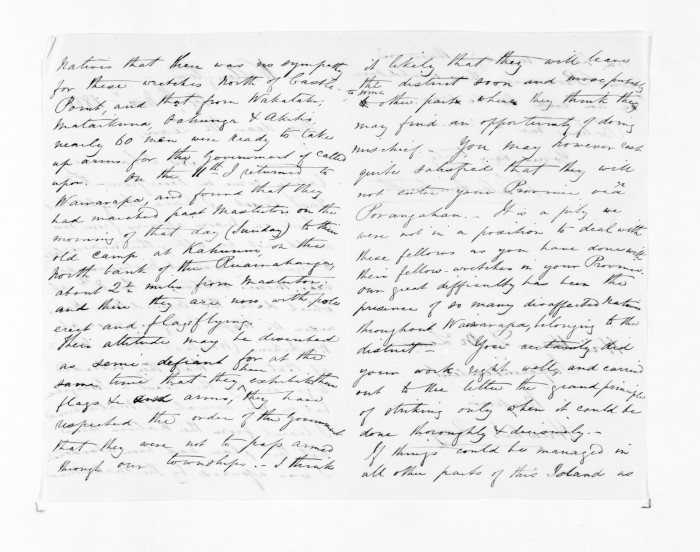 Natives that there was no sympathy
for these wretches North of Castle-
Point, and that from Wakatahi,
Mataikuna, Oahunga & Akitio
nearly 60 men were ready to take
up arms for the Government if called
upon. - On the 11th I returned to
Wairarapa, and found that they
had marched past Masterton on the
morning of that day (Sunday) to their
old camp at Kahumu, on the
North bank of the Ruamahanga,
about 2½ miles from Masterton:
and there they are now, with poles
erect and flags flying.
Their attitude may be described
as semi defiant for at the
same time that they have exhibited their
flags & arms, they have
respected the order of the Government
that they were not to pass armed
through our townships. - I think
it likely that they will leave
the district soon and move probably
to some other parts where they think they
may find an opportunity of doing
mischief - You may however rest
quite satisfied that they will
not enter your Province via
Porangahau. - It is a pity we
were not in a position to deal with
these fellows as you have done with
their fellow-wretches in your Province.
Our great difficulty has been the
presence of so many disaffected Natives
throughout Wairarapa, belonging to the
district. - You certainly did
your work right well, and carried
out to the letter the grand principle
of striking only when it could be
done thoroughly & decisively. -
If things could be managed in
all other parts of this Island as